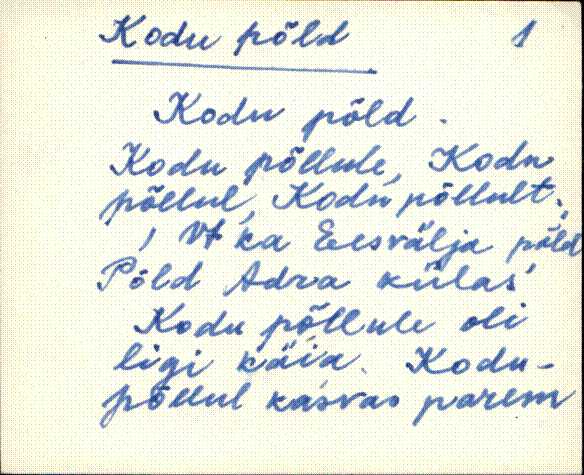 Kodu põld 1
Kodu põld.
Kodu põllule, Kodu
põllul, Kodu põllult.
, Vt ka Eesvälja põld
Põld Adra külas
Kodu põllule oli
ligi käia. Kodu-
põllul kasvas parem